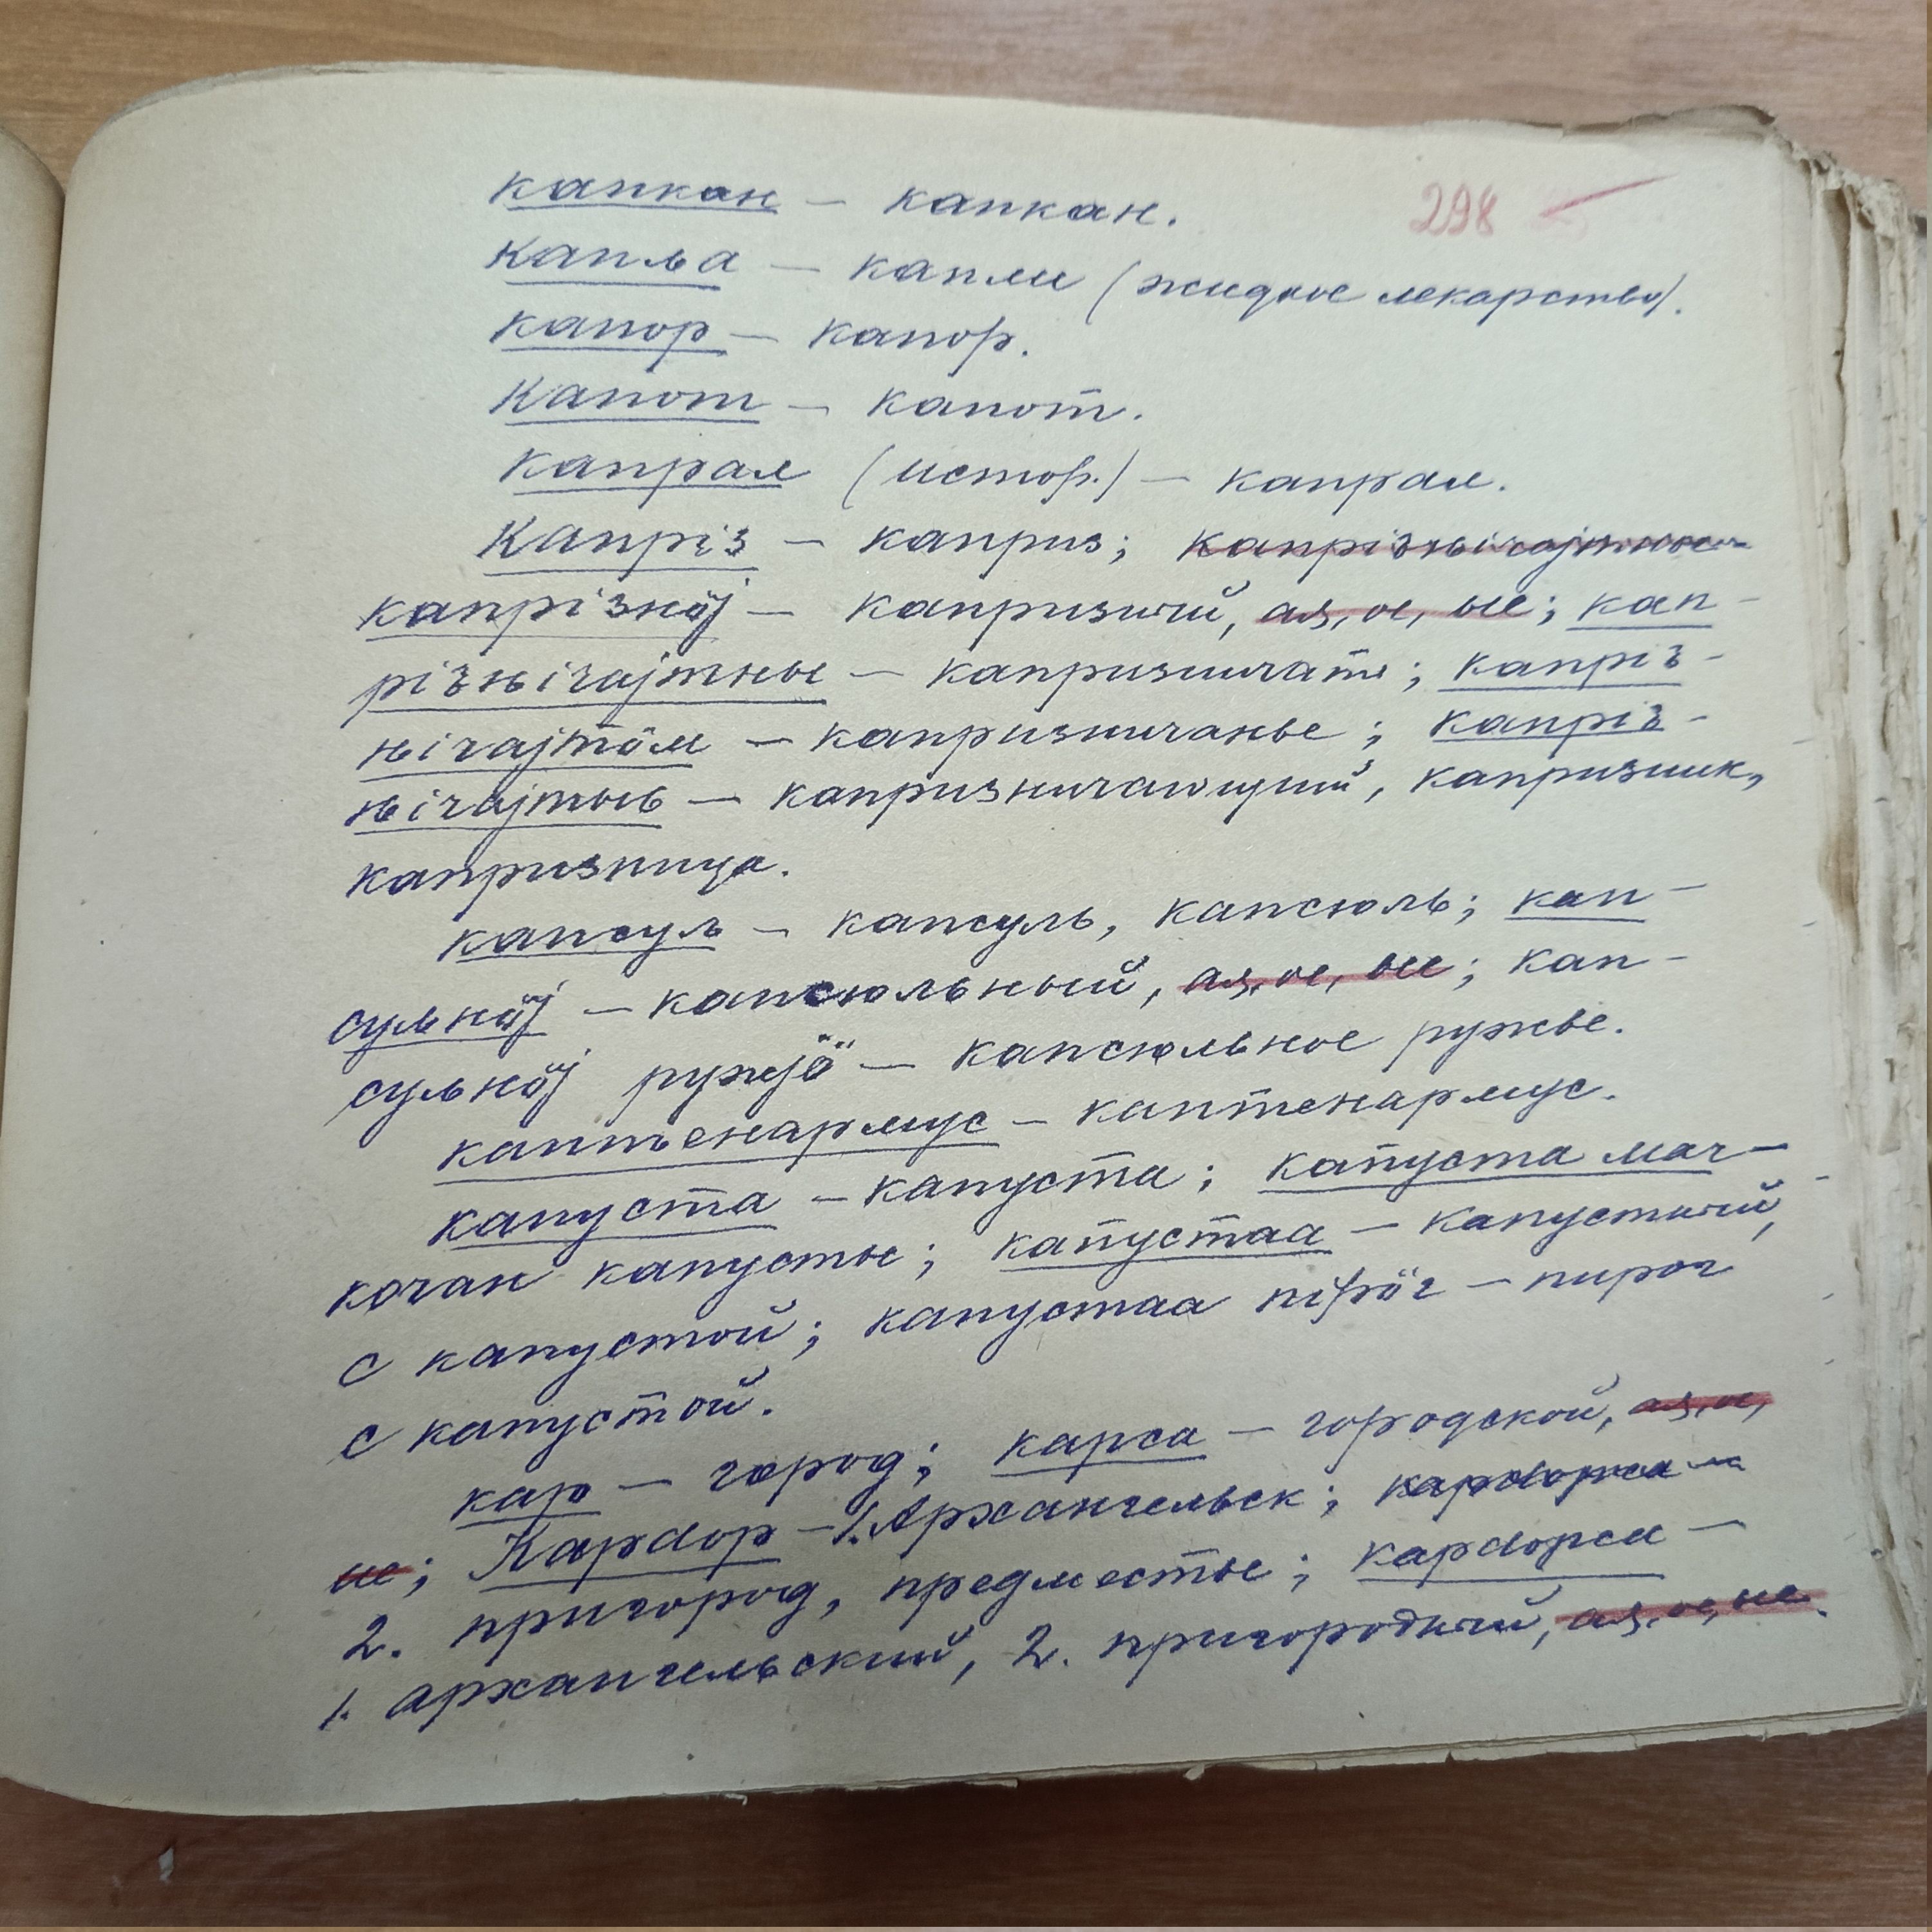 298
капкан – капкан.
капља – капли (жидкое лекарство).
капор – капор.
капот – капот.
капрал (истор.) – капрал.
капріз – каприз; капрізњічајтны –
капрізнӧј – капризный, ая, ое, ые; кап-
різњічајтны – капризничать; капріз-
њічајтӧм – капризничанье; капріз-
њічајтыс – капризничающий, капризник,
капризница.
капсуљ – капсуль, капсюль; кап-
суљнӧј – капсюльный, ая, ое, ые; кап-
суљнӧј ружјӧ – капсюльное ружье.
каптенармус – каптенармус.
капуста – капуста; капуста мач –
кочан капусты; капустаа – капустный,
с капустой; капустаа пірӧг – пирог
с капустой.
кар – город; карса – городской, ая, ое,
ие; Кардор – 1. Архангельск; кардорса –
2. пригород, предместье; кардорса –
1. архангельский, 2. пригородный, ая, ое, ые.